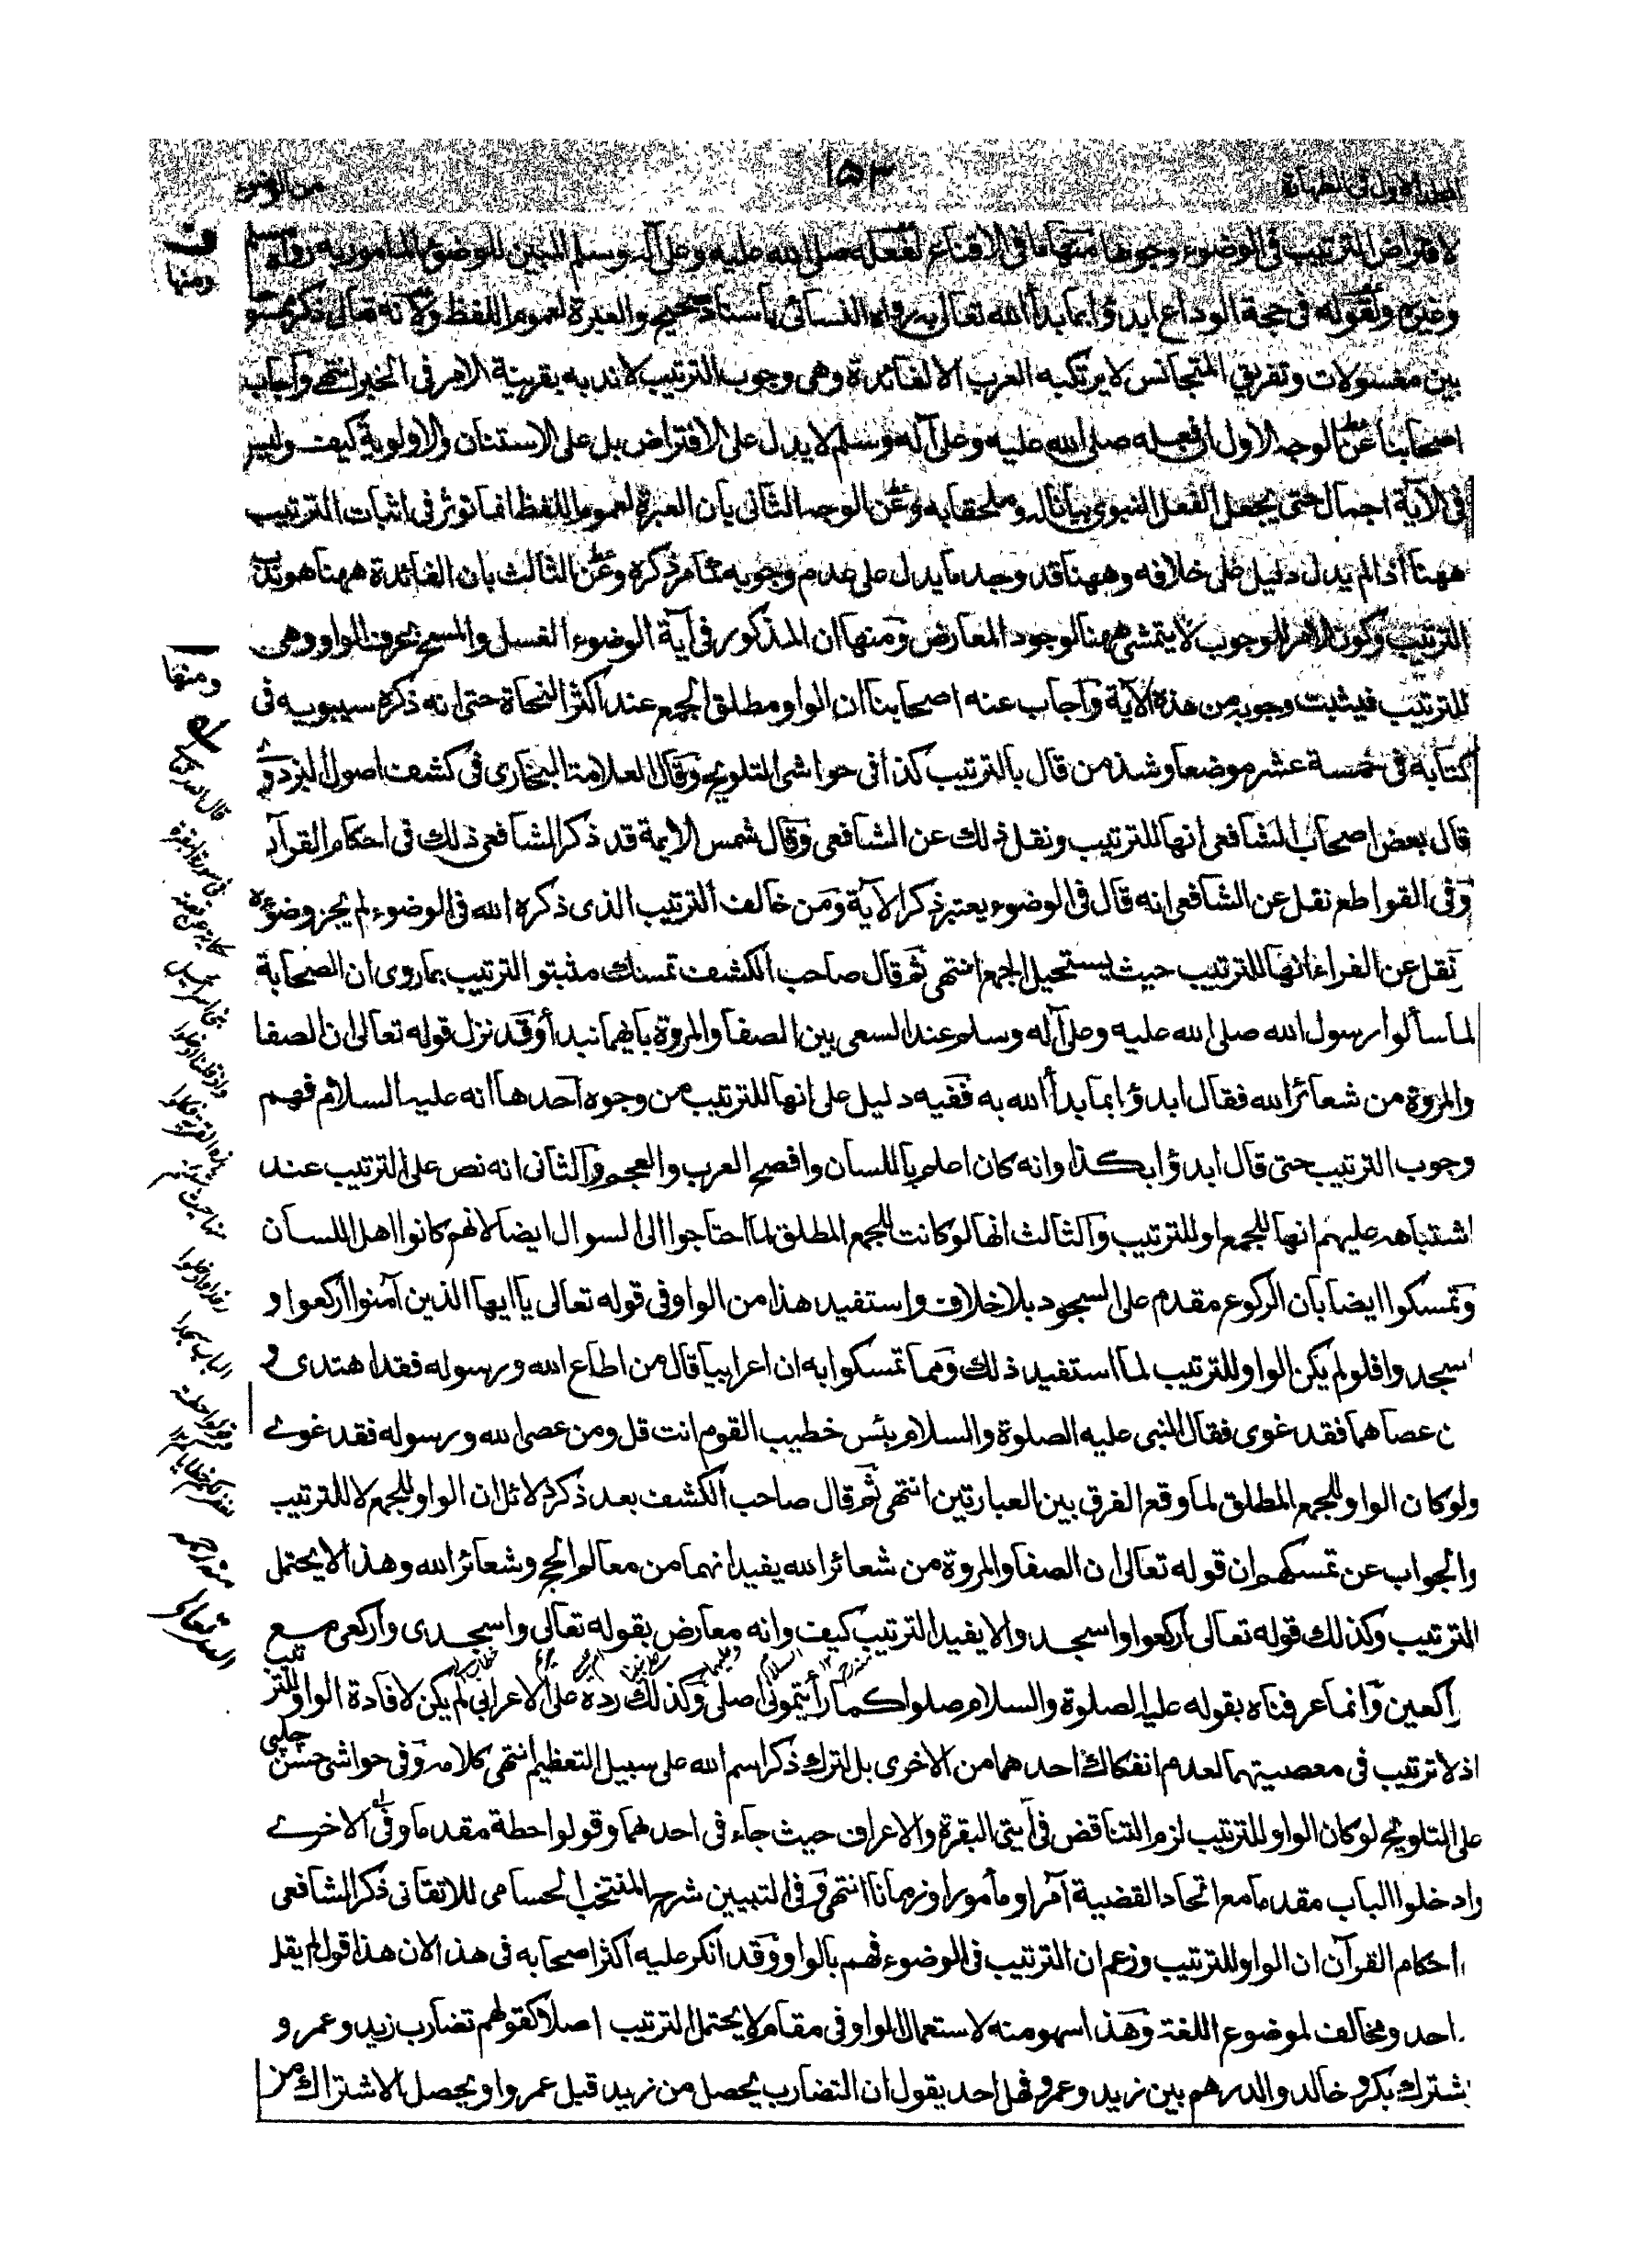 ١٥٣
من الوضوء
لافتراض الترتيب فى الوضوء وجوها منها ما فى الاقناع لفعله صلى الله عليه وعلى آله وسلم المبين للوضوء المامور به رواه مسلم
وغيره ولقوله فى حجة الوداع ابدؤا بما بدأ الله تعالى به رواه النسائى باسناد صحيح والعبرة لعموم اللفظ ولانه تعالى ذكر ممسوحا
بين مغسولات وتفريق المتجانس لا يرتكبه العرب الا لفائدة وهى وجوب الترتيب لا ندبه بقرينة الامر فى الخبر انتهى واجاب
اصحابنا عن الوجه الاول ان فعله صلى الله عليه وعلى آله وسلم لا يدل على الافتراض بل على الاستنان والاولوية كيف وليس
فى الآية اجمال حتى يجعل الفعل النبوى بيانا له وملحقا به وعن الوجه الثانى بان العبرة لعموم اللفظ انما توثر فى اثبات الترتيب
ههنا اذا لم يدل دليل على خلافه وههنا قد وجد ما يدل على عدم وجوبه مما مر ذكره وعن الثالث بان الفائدة ههنا هو ندب
الترتيب وكون الامر للوجوب لا يتمشى ههنا لوجود المعارض ومنها ان المذكور فى آية الوضوء الغسل والمسح بحرف الواو وهى
للترتيب فيثبت وجوبه من هذه الآية وأجاب عنه اصحابنا ان الواو مطلق الجمع عند اكثر النحاة حتى انه ذكره سيبويه فى
كتابه فى خمسة عشر موضعا وشذ من قال بالترتيب كذا فى حواشى التلويح وقال العلامة البخارى فى كشف اصول البزدوى
قال بعض اصحاب الشافعى انها للترتيب ونقل ذلك عن الشافعى وقال شمس الايمة قد ذكر الشافعى ذلك فى احكام القرآن
وفى القواطع نقل عن الشافعى انه قال فى الوضوء يعتبر ذكر الآية ومن خالف الترتيب الذى ذكره الله فى الوضوء لم يجز وضوءه
نقل عن الفراء انها للترتيب حيث يستحيل الجمع انتهى ثم قال صاحب الكشف تمسك مثبتو الترتيب بما روى ان الصحابة
لما سألوا رسول الله صلى الله عليه وعلى آله وسلم عند السعى بين الصفا والمروة بايهما نبدأ وقد نزل قوله تعالى ان الصفا
والمروة من شعائر الله فقال ابدؤا بما بدأ الله به ففيه دليل على انها للترتيب من وجوه احدها انه عليه السلام فهم
وجوب الترتيب حتى قال ابدؤا بكذا وانه كان اعلم باللسان وافصح العرب والعجم والثانى انه نص على الترتيب عند
اشتباهه عليهم انها للجمع او للترتيب والثالث انها لو كانت للجمع المطلق لما احتاجوا الى السوال ايضا لانهم كانوا اهل اللسان
وتمسكوا ايضا بان الركوع مقدم على السجود بلا خلاف واستفيد هذا من الواو فى قوله تعالى يا ايها الذين آمنوا اركعوا و
اسجدوا فلو لم يكن الواو للترتيب لما استفيد ذلك ومما تمسكوا به ان اعرابيا قال من اطاع الله ورسوله فقد اهتدى و
ن عصاهما فقد غوى فقال النبى عليه الصلوة والسلام بئس خطيب القوم انت قل ومن عصى الله ورسوله فقد غوى
ولو كان الواو للجمع المطلق لما وقع الفرق بين العبارتين انتهى ثم قال صاحب الكشف بعد ذكر دلائل ان الواو للجمع لا للترتيب
والجواب عن تمسكهم ان قوله تعالى ان الصفا والمروة من شعائر الله يفيد انهما من معالم الحج وشعائر الله وهذا لا يحتمل
الترتيب وكذلك قوله تعالى اركعوا واسجدوا لا يفيد الترتيب كيف وانه معارض بقوله تعالى واسجدى واركعى مع
راكعين وانما عرفناه بقوله عليه الصلوة والسلام صلوا كما رأيتمونى اصلى وكذلك رده على الاعرابى لم يكن لافادة الواو للترتيب
اذ لا ترتيب فى معصيتهما لعدم انفكاك احدهما من الاخرى بل لترك ذكر اسم الله على سبيل التعظيم انتهى كلامه وفى حواشى حسن چلپى
على التلويح لو كان الواو للترتيب لزم التناقض فى آيتى البقرة والاعراف حيث جاء فى احدهما وقولوا حطة مقدما وفى الاخرى
وادخلوا الباب مقدما مع اتحاد القضية آمرا ومأمورا وزمانا انتهى وفى التبيين شرح المنتخب الحسامى للاتقانى ذكر الشافعى
احكام القرآن ان الواو للترتيب وزعم ان الترتيب فى الوضوء فهم بالواو وقد انكر عليه اكثر اصحابه فى هذا لان هذا قول لم يقل
احد ومخالف لموضوع اللغة وهذا سهو منه لاستعمال الواو فى مقام لا يحتمل الترتيب اصلا كقولهم تضارب زيد وعمرو و
اشترك بكر وخالد والدرهم بين زيد وعمرو فهل احد يقول ان التضارب يحصل من زيد قبل عمرو او يحصل الاشتراك من
ف
ومنها
ومنها